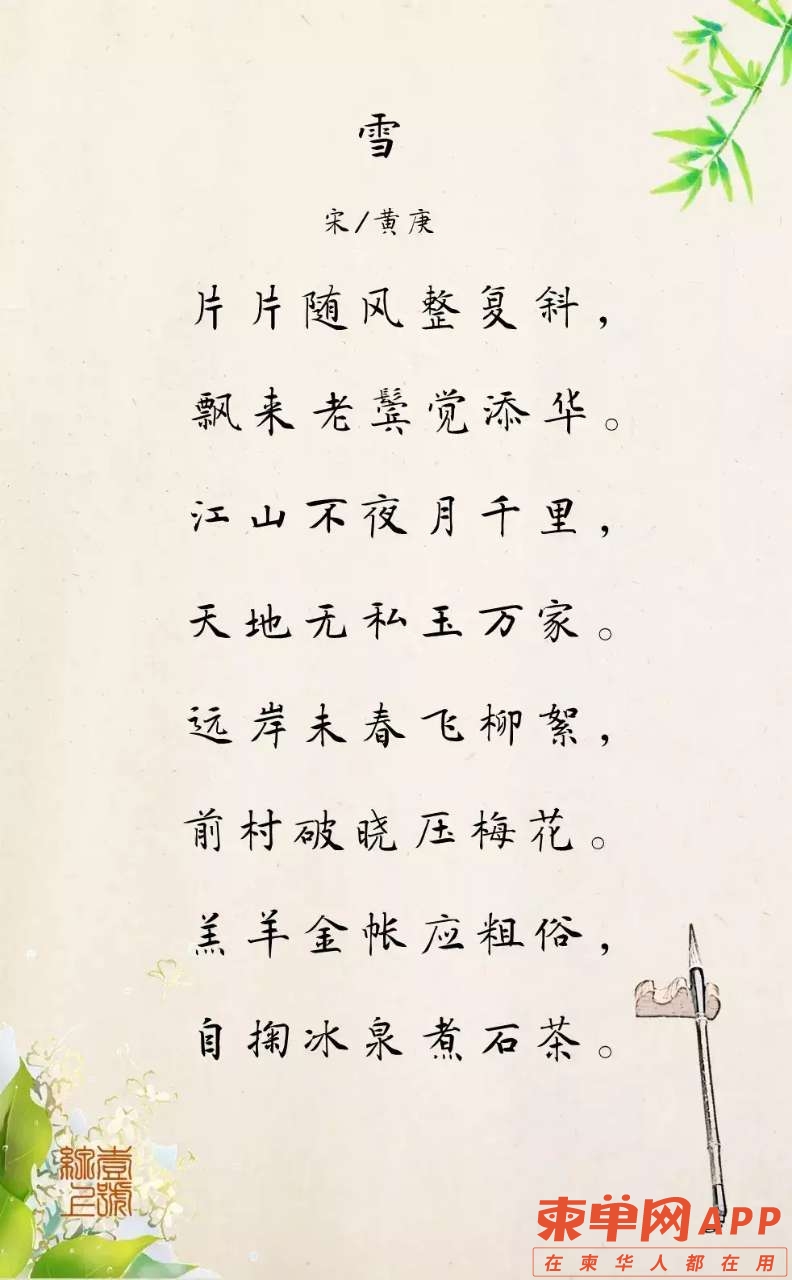 雪
宋/黄庚
片片随风整复斜，
飘来老鬓觉添华。
江山不夜月千里，
天地无私玉万家。
远岸未春飞柳絮，
前村破晓压梅花。
羔羊金帐应粗俗，
自掬冰泉煮石茶。
柬单网APP
在柬华人都在用